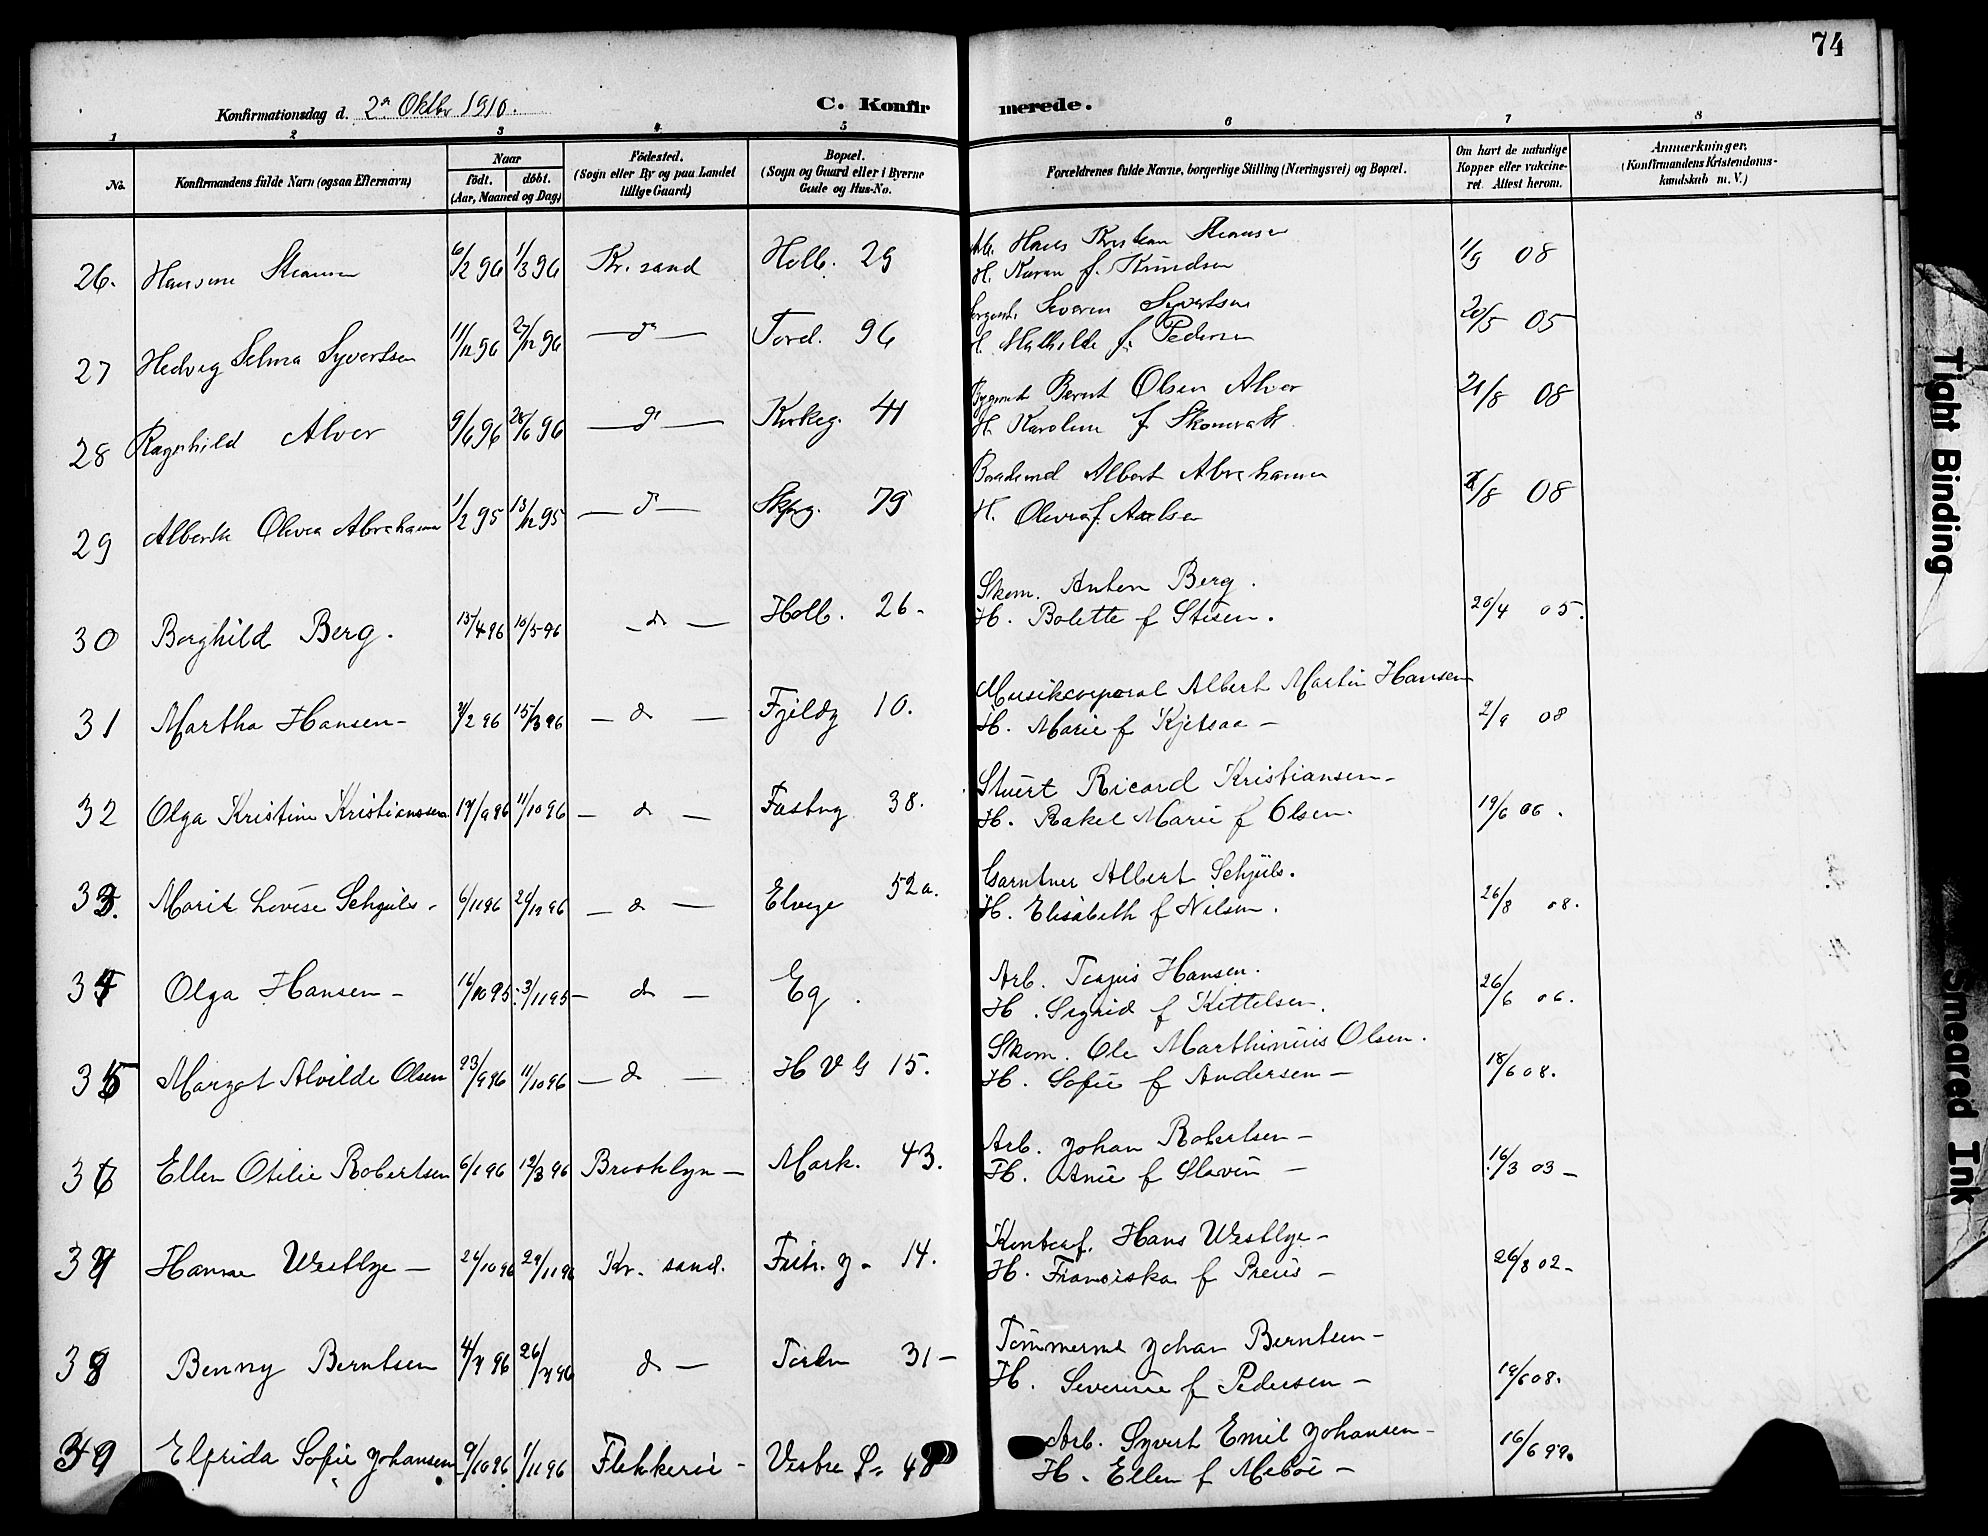 74
Konfirmationsdag d. 2n Oktbr 1910.
C. Konfirmerede.
1 2 3 4 5 6 7 8
No.
Konfirmandens fulde Navn (ogsaa Efternavn)
Naar
födt. döbt.
(Aar, Maaned og Dag)
Födested.
(Sogn eller By og paa Landet
tillige Gaard)
Bopæl.
(Sogn og Gaard eller i Byerne
Gade og Hus-No.
Forældrenes fulde Navne, borgerlige Stilling (Næringsvei) og Bopæl.
Om havt de naturlige
Kopper eller vakcine-
ret. Attest herom.
Anmærkninger.
(Konfirmandens Kristendoms-
kundskab m. V.)
Arb. Hans Kristian
26. 6/2 96 1/3 96 Kr. sand Holb. 29 1/9 08
H. Karen f. Knudsen
Severin Syvertsen
27 Hedvig Selma Syvertsen 11/12 96 27/12 96 — d — Tord. 96 20/5 05
H. Mathilde f. Pedersen
Bernt Olsen Alver
28 Ragnhild Alver 9/6 96 28/6 96 — d — Kirkeg. 41 21/8 08
H. Karoline f
Albert Abrahamsen
29 Olivia Abrahamsen 1/2 95 13/12 95 — d — Skpg. 79 /8 08
H. Olivia f.
Skom. Anton Berg.
30 Borghild Berg. 15/4 96 10/5 96 — do — Holb. 26 - 20/4 05.
H. Bolette f Stisen.
Musikcorporal Albert Martin Hansen
31 Martha Hansen - /2 96 15/3 96 — d — Fjeldg 10. 2/9 08
H. Marie f Kjetsaa -
Stuert Ricard Kristiansen -
32 Olga Kristine Kristianssen 17/9 96 11/10 96 — d — Fæstng 38. 19/6 06.
H. Rakel Marie f Olsen.
Gartner Albert Schjüls.
33. Marit Lovise Schjüls - 6/11 96 26/12 96 — d — Elvege 52a. 26/8 08.
H. Elisabeth f Nilsen.
Arb. Terjus Hansen.
34 Olga Hansen - 16/10 95 3/11 95 — do — Eg. 26/6 06.
H. Sigrid f Kittelsen.
Skom. Ole Marthinius Olsen.
35 Margot Alvilde Olsen 23/9 96 11/10 96 — d — H V G 15. 18/6 08.
H. Sofie f Andersen -
Arb. Johan Robertsen -
36 Ellen Otilie Robertsen 6/1 96 12/3 96 Brooklyn - Mark. 43. 16/3 03 -
H. Anie f Slavin -
Kontorf. Hans Westbye -
37 Hanna Westbye - 26/10 96 29/11 96 Kr. sand. Festn. g. 14. 26/8 02 -
H. Fransiska f Preus -
Tømmermd Johan Berntsen -
38 Benny Berntsen 4/7 96 26/7 96 do — Torden 31 - 19/6 08.
H. Severine f Pedersen -
Arb. Syvert Emil Johansen -
39 Elfrida Sofie Johansen 9/10 96 1/11 96 Flekkerøi - Vestre S. 48 16/6 99.
H. Ellen f Mebøe -
Tight Binding
Smeared Ink